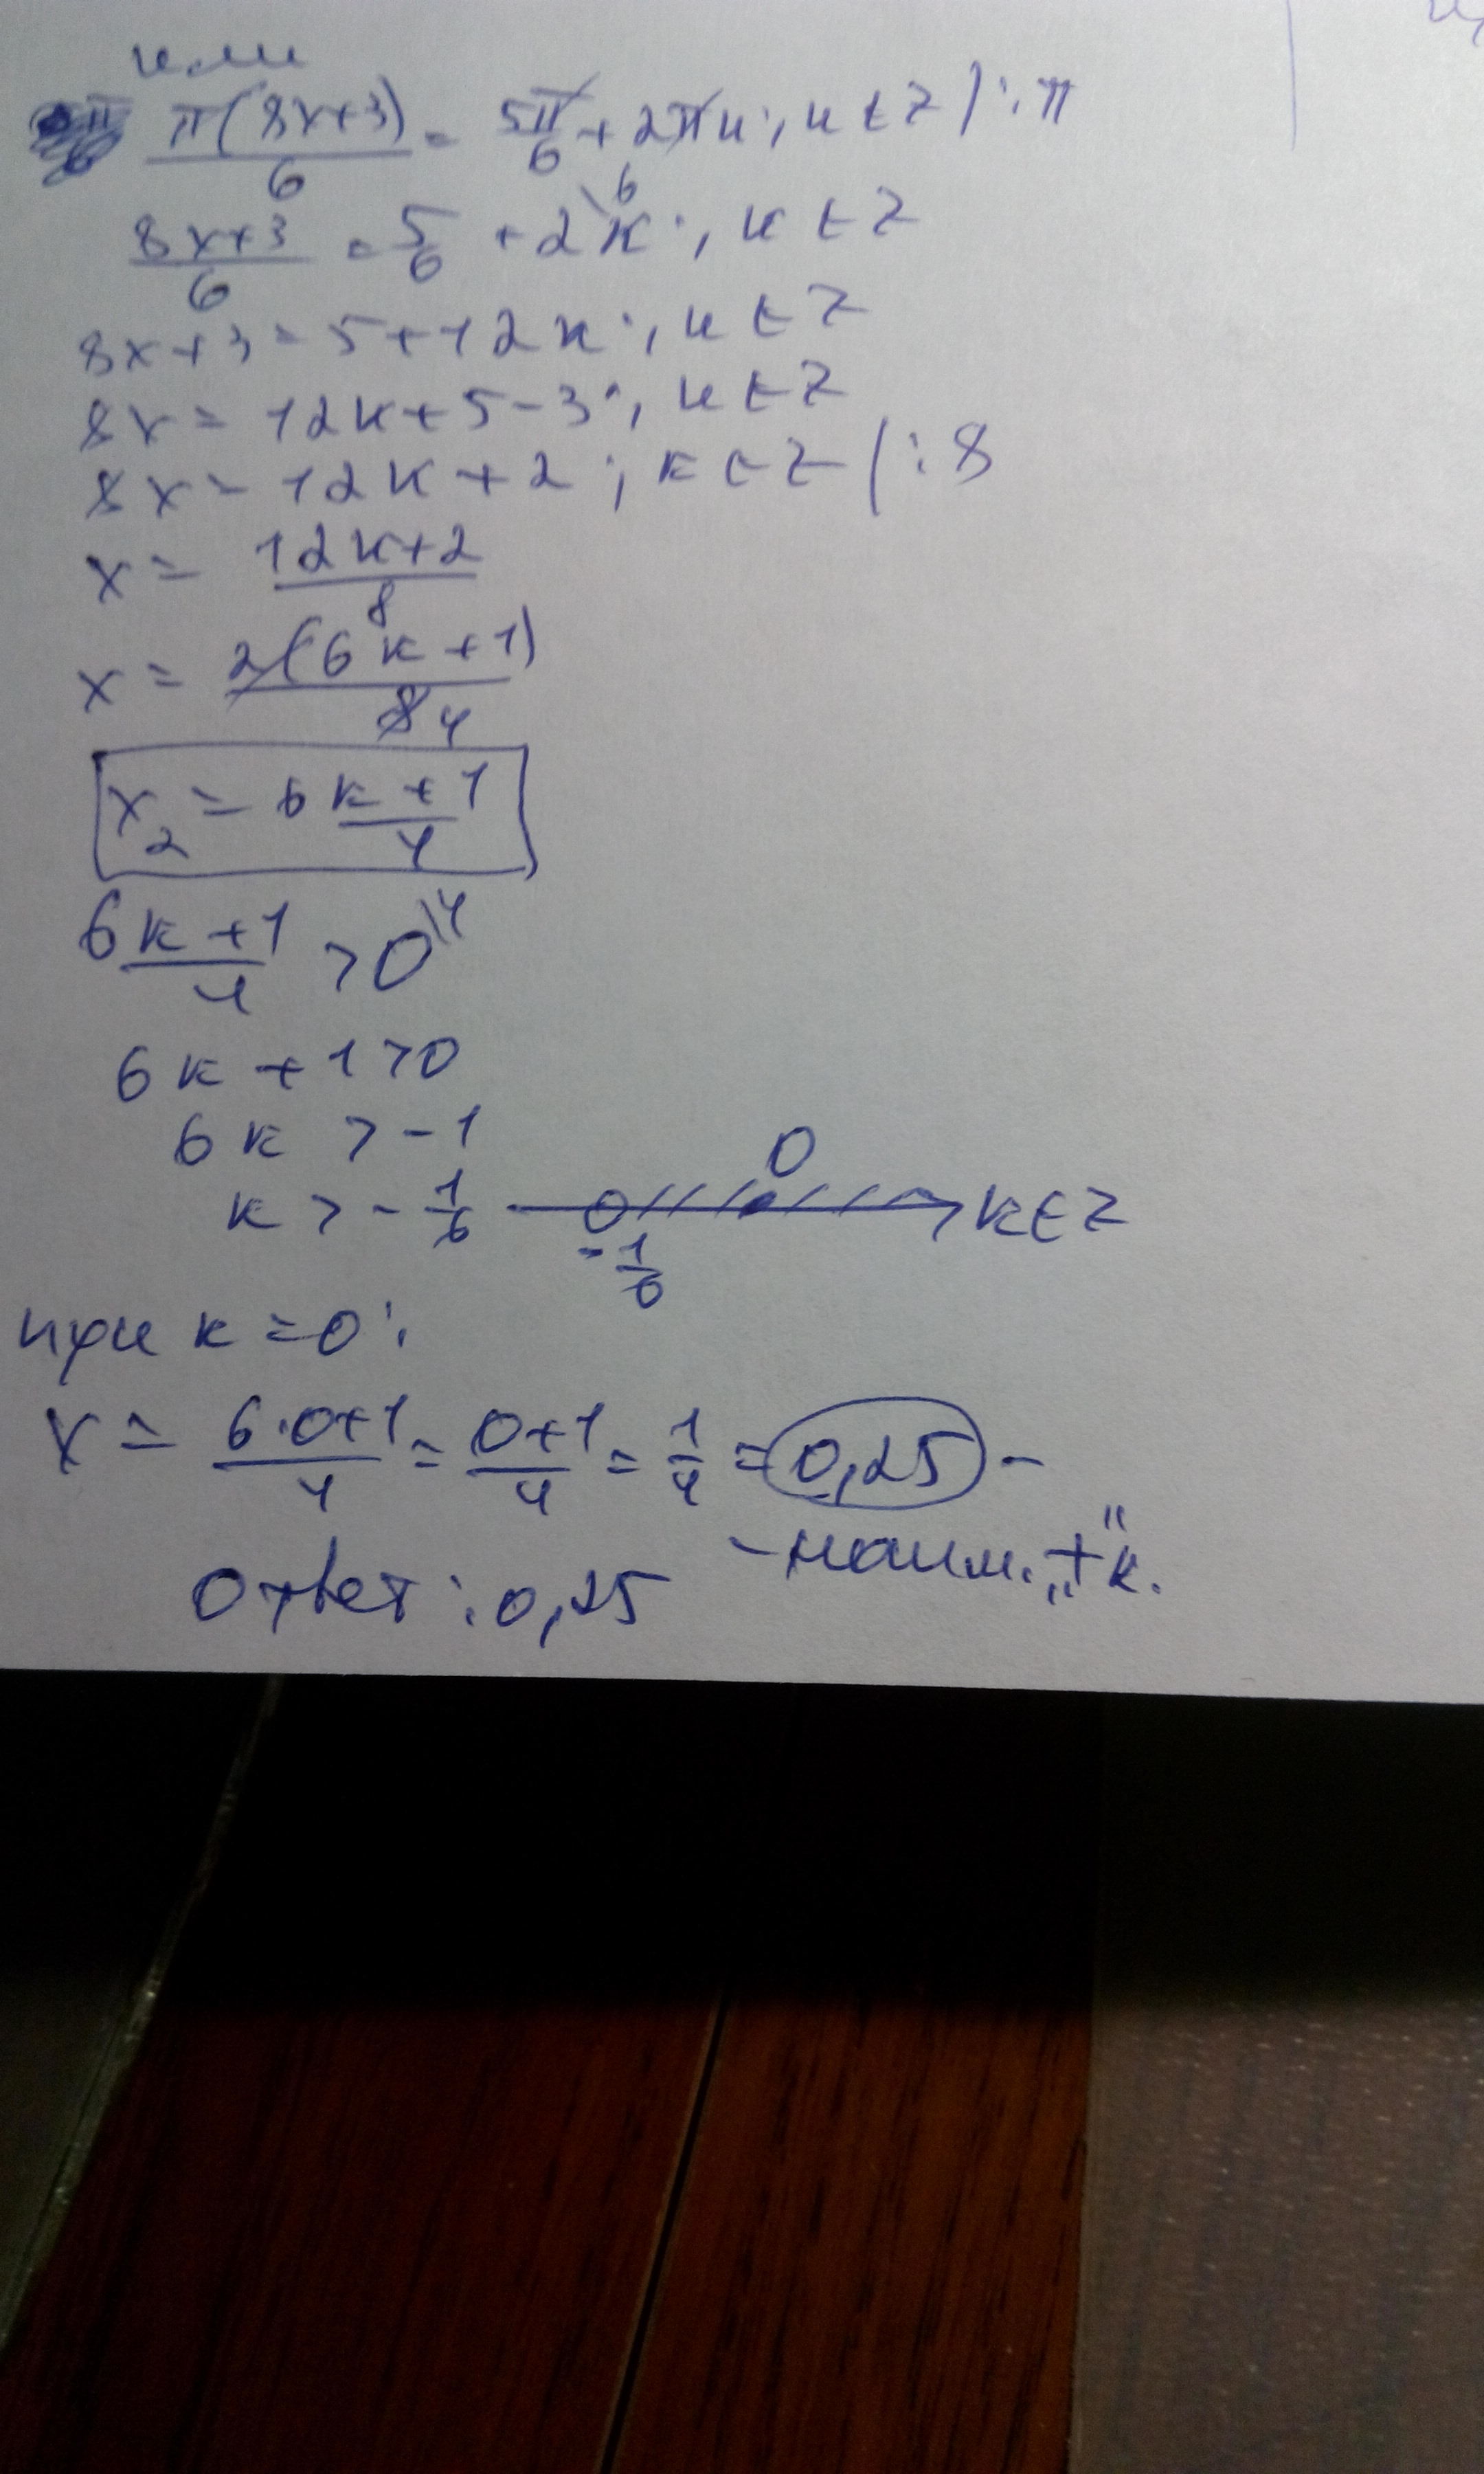 или
π(8x+3)/6 = 5π/6 + 2πк; к ∈ Z /:π
(8x+3)/6 = 5/6 + 2к\6; к ∈ Z
8x+3 = 5+12к; к ∈ Z
8x = 12к+5-3; к ∈ Z
8x = 12к+2; к ∈ Z /:8
x = (12к+2)/8
x = 2(6к+1)/8 4
x₂ = (6к+1)/4
(6к+1)/4 > 0\4
6к+1>0
6к > -1
к > -1/6 0 -1/6 к ∈ Z
при к=0:
x = (6·0+1)/4 = (0+1)/4 = 1/4 = 0,25 -
- наим. „+" к.
Ответ: 0,25